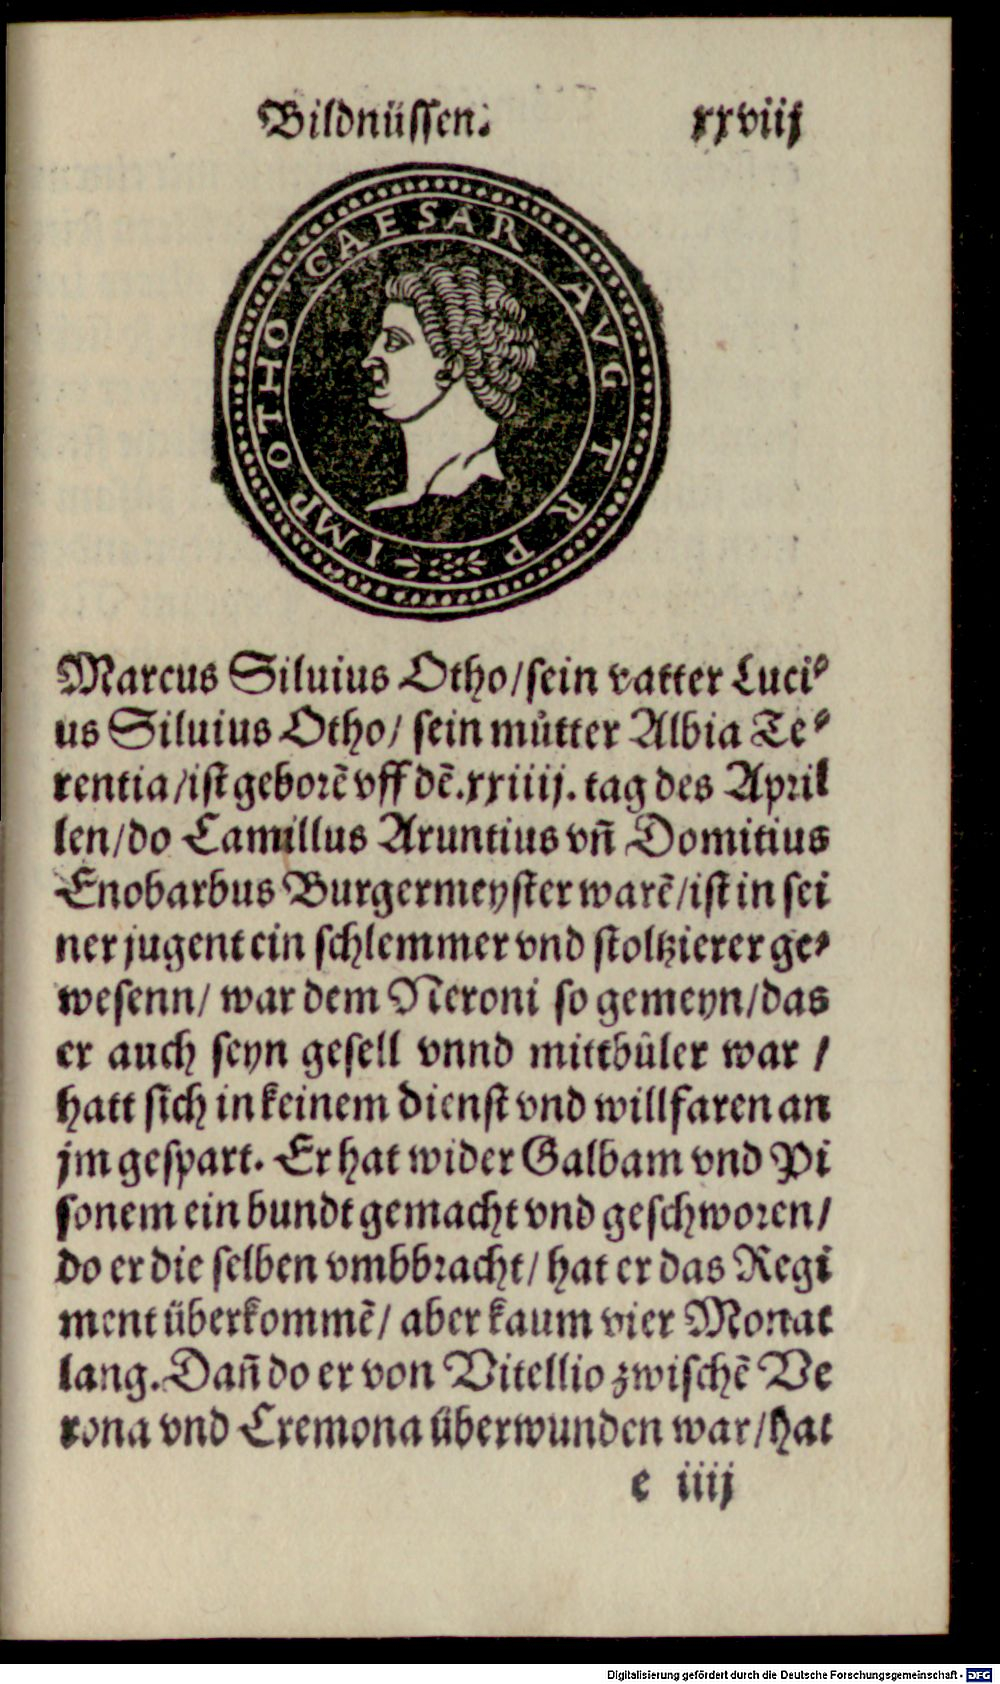 Bildnüssen. xxviij
IMP OTHO CAESAR AVG TR P
Marcus Siluius Otho/sein vatter Luci⸗
us Siluius Otho/ sein můtter Albia Te⸗
rentia/ist geborẽ vff dẽ.xxiiij. tag des April
len/do Camillus Aruntius vñ Domitius
Enobarbus Burgermeyster warẽ/ist in sei
ner jugent ein schlemmer vnd stoltzierer ge⸗
wesenn/ war dem Neroni so gemeyn/das
er auch seyn gesell vnnd mittbůler war /
hatt sich in keinem dienst vnd willfaren an
jm gespart. Er hat wider Galbam vnd Pi
sonem ein bundt gemacht vnd geschworen/
do er die selben vmbbracht/ hat er das Regi
ment überkommẽ/ aber kaum vier Monat
lang. Dañ do er von Vitellio zwischẽ Ve
rona vnd Cremona überwunden war/hat
e iiij
Digitalisierung gefördert durch die Deutsche Forschungsgemeinschaft - DFG